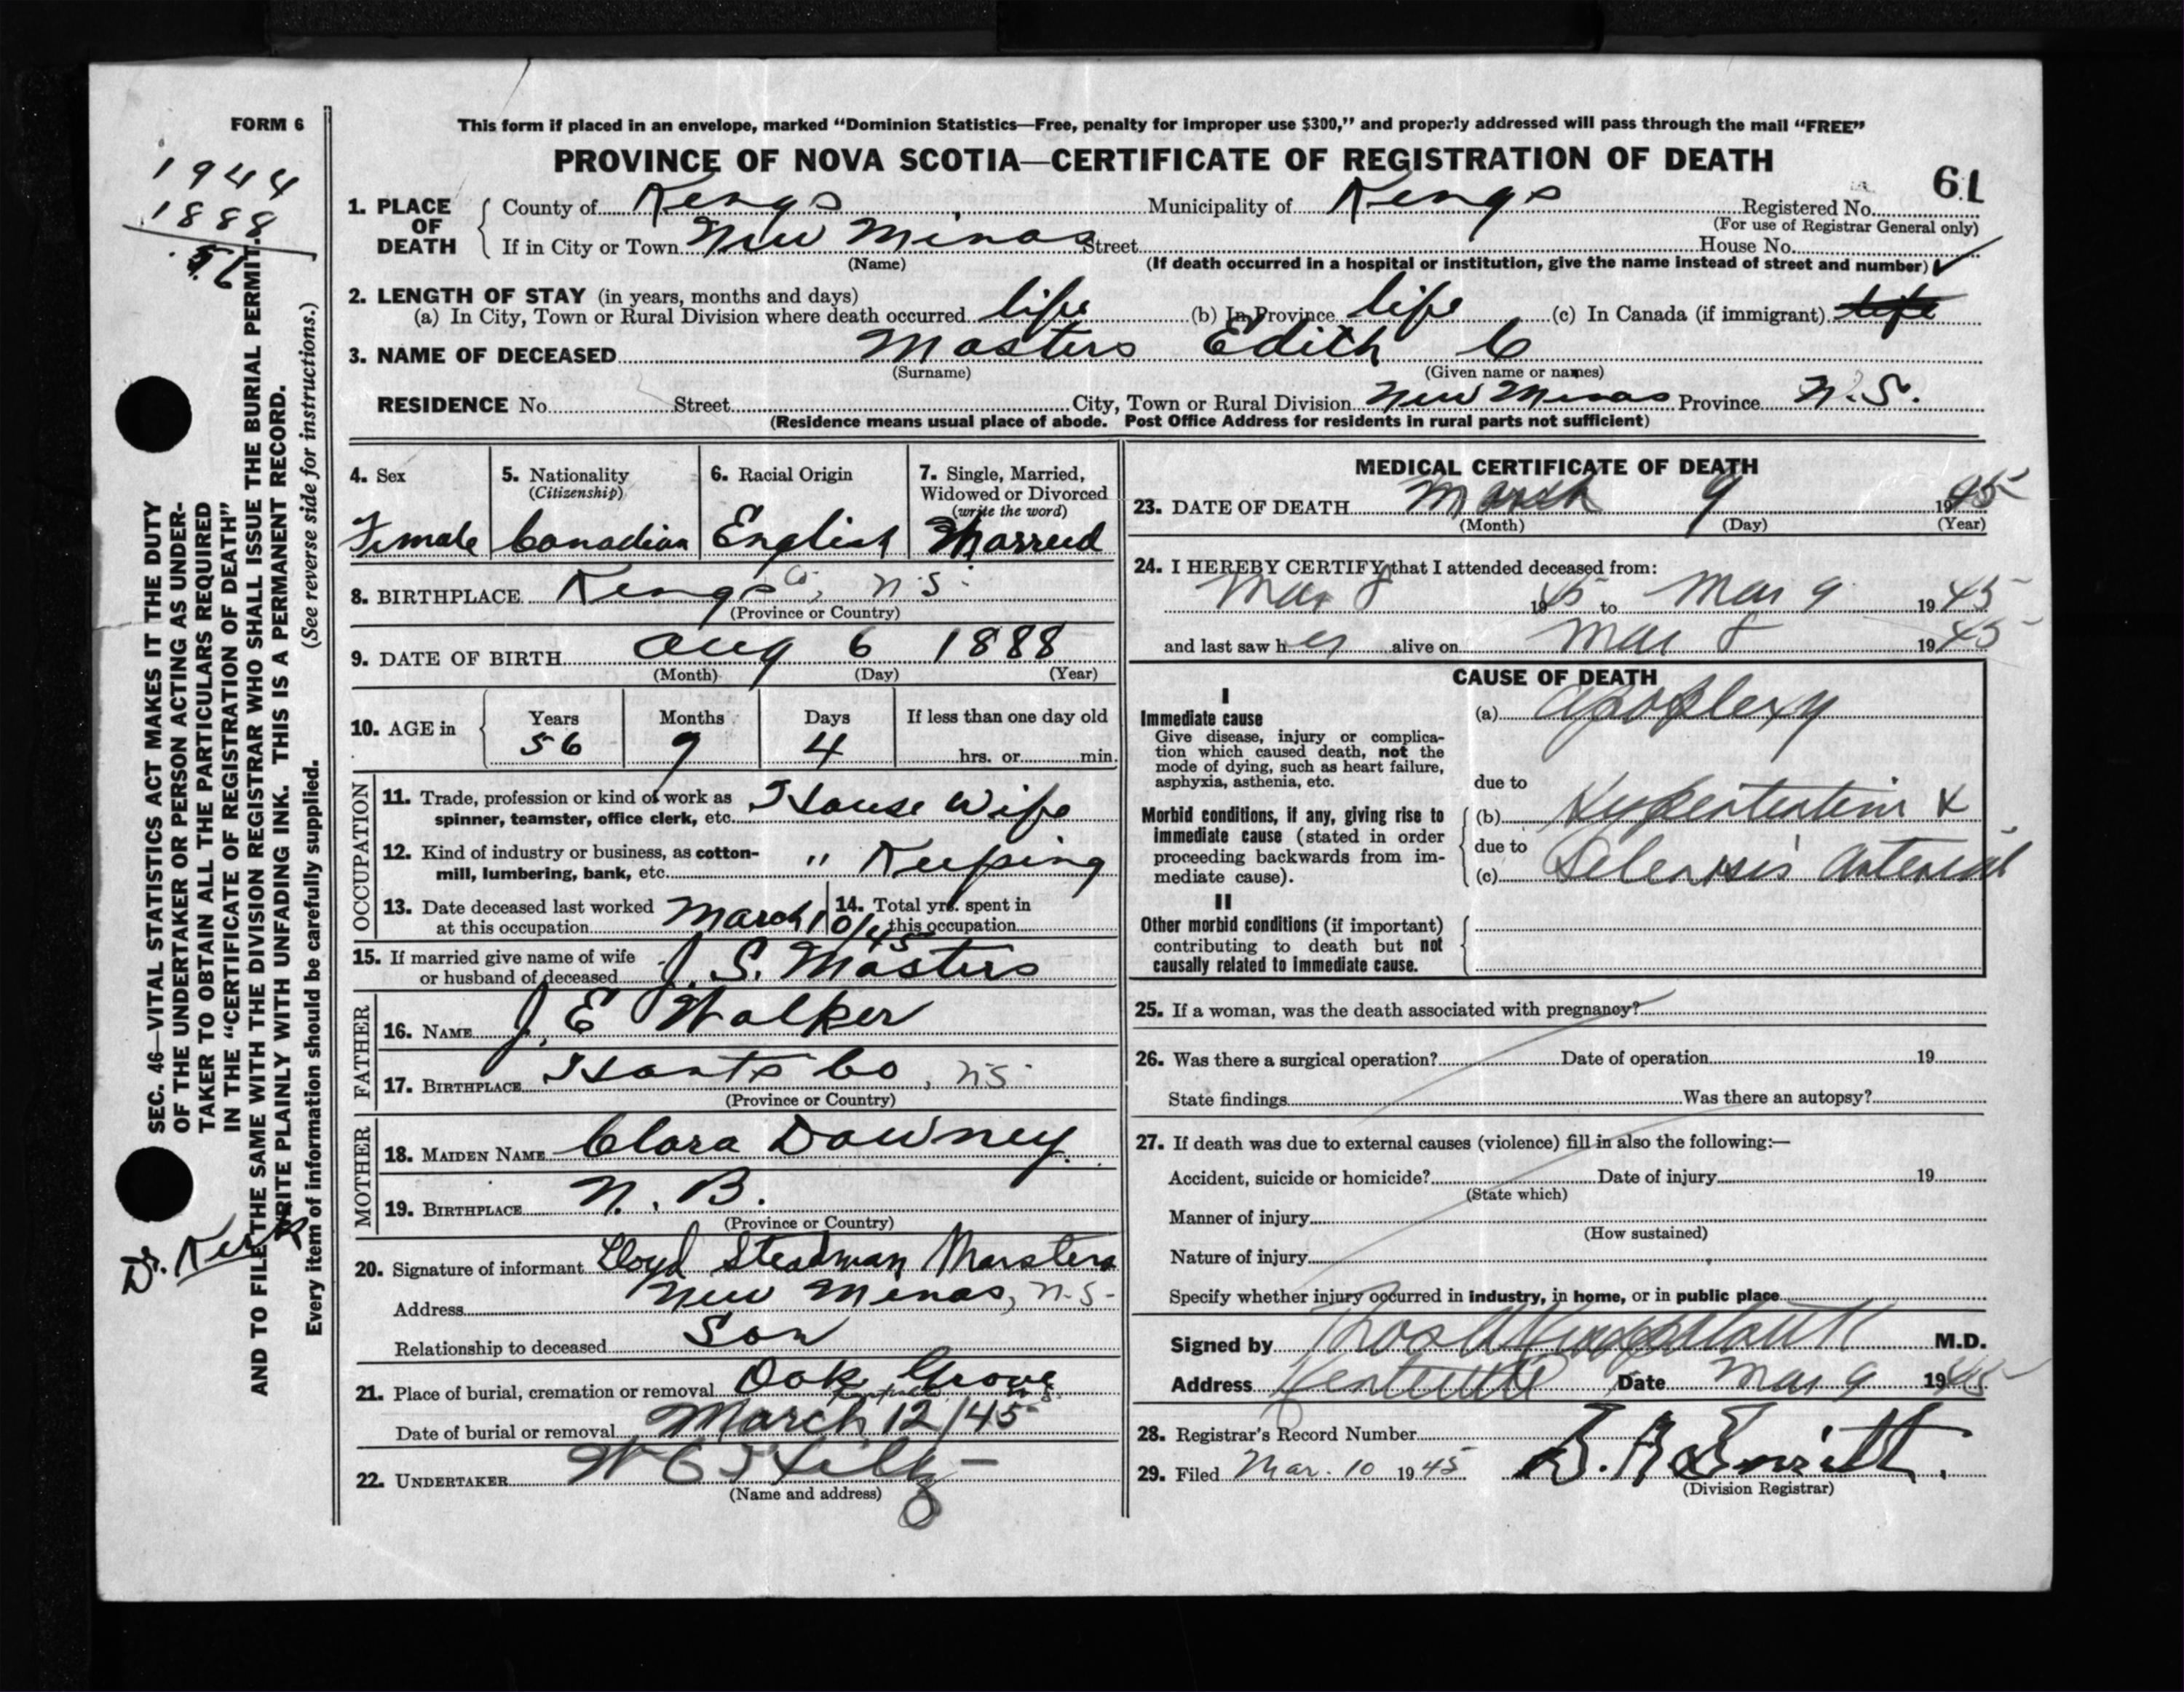 FORM 6
This form if placed in an envelope, marked "Dominion Statistics—Free, penalty for improper use $300," and properly addressed will pass through the mail "FREE"
PROVINCE OF NOVA SCOTIA—CERTIFICATE OF REGISTRATION OF DEATH
61
1944
1888
56
1. PLACE OF DEATH
County of Kings Municipality of Kings Registered No.
(For use of Registrar General only)
If in City or Town New Minas Street House No.
(Name) (If death occurred in a hospital or institution, give the name instead of street and number) ✓
2. LENGTH OF STAY (in years, months and days)
(a) In City, Town or Rural Division where death occurred life (b) In Province life (c) In Canada (if immigrant) life
3. NAME OF DECEASED Masters Edith C
(Surname) (Given name or names)
RESIDENCE No. Street City, Town or Rural Division New Minas Province N.S.
(Residence means usual place of abode. Post Office Address for residents in rural parts not sufficient)
4. Sex
Female
5. Nationality
(Citizenship)
Canadian
6. Racial Origin
English
7. Single, Married,
Widowed or Divorced
(write the word)
Married
8. BIRTHPLACE Kings Co, N.S.
(Province or Country)
9. DATE OF BIRTH Aug 6 1888
(Month) (Day) (Year)
10. AGE in
Years Months Days If less than one day old
56 9 4 hrs. or min.
OCCUPATION
11. Trade, profession or kind of work as
spinner, teamster, office clerk, etc. House Wife
12. Kind of industry or business, as cotton-
mill, lumbering, bank, etc. " Keeping
13. Date deceased last worked
at this occupation March 10/45
14. Total yrs. spent in
this occupation
15. If married give name of wife
or husband of deceased J. S. Masters
FATHER
16. NAME J. E Walker
17. BIRTHPLACE Hants Co, N.S.
(Province or Country)
MOTHER
18. MAIDEN NAME Clara Downey
19. BIRTHPLACE N. B.
(Province or Country)
20. Signature of informant Lloyd Steadman Marsters
Address New Minas, N.S.
Relationship to deceased Son
21. Place of burial, cremation or removal Oak Grove
Date of burial or removal March 12/45
22. UNDERTAKER
(Name and address)
MEDICAL CERTIFICATE OF DEATH
23. DATE OF DEATH March 9 1945
(Month) (Day) (Year)
24. I HEREBY CERTIFY that I attended deceased from:
Mar 8 1945 to Mar 9 1945
and last saw her alive on Mar 8 1945
CAUSE OF DEATH
I
Immediate cause
Give disease, injury or complica-
tion which caused death, not the
mode of dying, such as heart failure,
asphyxia, asthenia, etc.
(a) Apoplexy
due to
Morbid conditions, if any, giving rise to
immediate cause (stated in order
proceeding backwards from im-
mediate cause).
(b) Hypertention &
due to
(c) Sclerosis Arterial
II
Other morbid conditions (if important)
contributing to death but not
causally related to immediate cause.
25. If a woman, was the death associated with pregnancy?
26. Was there a surgical operation? Date of operation 19
State findings Was there an autopsy?
27. If death was due to external causes (violence) fill in also the following:—
Accident, suicide or homicide? Date of injury 19
(State which)
Manner of injury
(How sustained)
Nature of injury
Specify whether injury occurred in industry, in home, or in public place
Signed by M.D.
Address Kentville Date Mar 9 1945
28. Registrar's Record Number
29. Filed Mar. 10 1945
(Division Registrar)
SEC. 46—VITAL STATISTICS ACT MAKES IT THE DUTY
OF THE UNDERTAKER OR PERSON ACTING AS UNDER-
TAKER TO OBTAIN ALL THE PARTICULARS REQUIRED
IN THE "CERTIFICATE OF REGISTRATION OF DEATH"
AND TO FILE THE SAME WITH THE DIVISION REGISTRAR WHO SHALL ISSUE THE BURIAL PERMIT.
WRITE PLAINLY WITH UNFADING INK. THIS IS A PERMANENT RECORD.
Every item of information should be carefully supplied. (See reverse side for instructions.)
Dr.